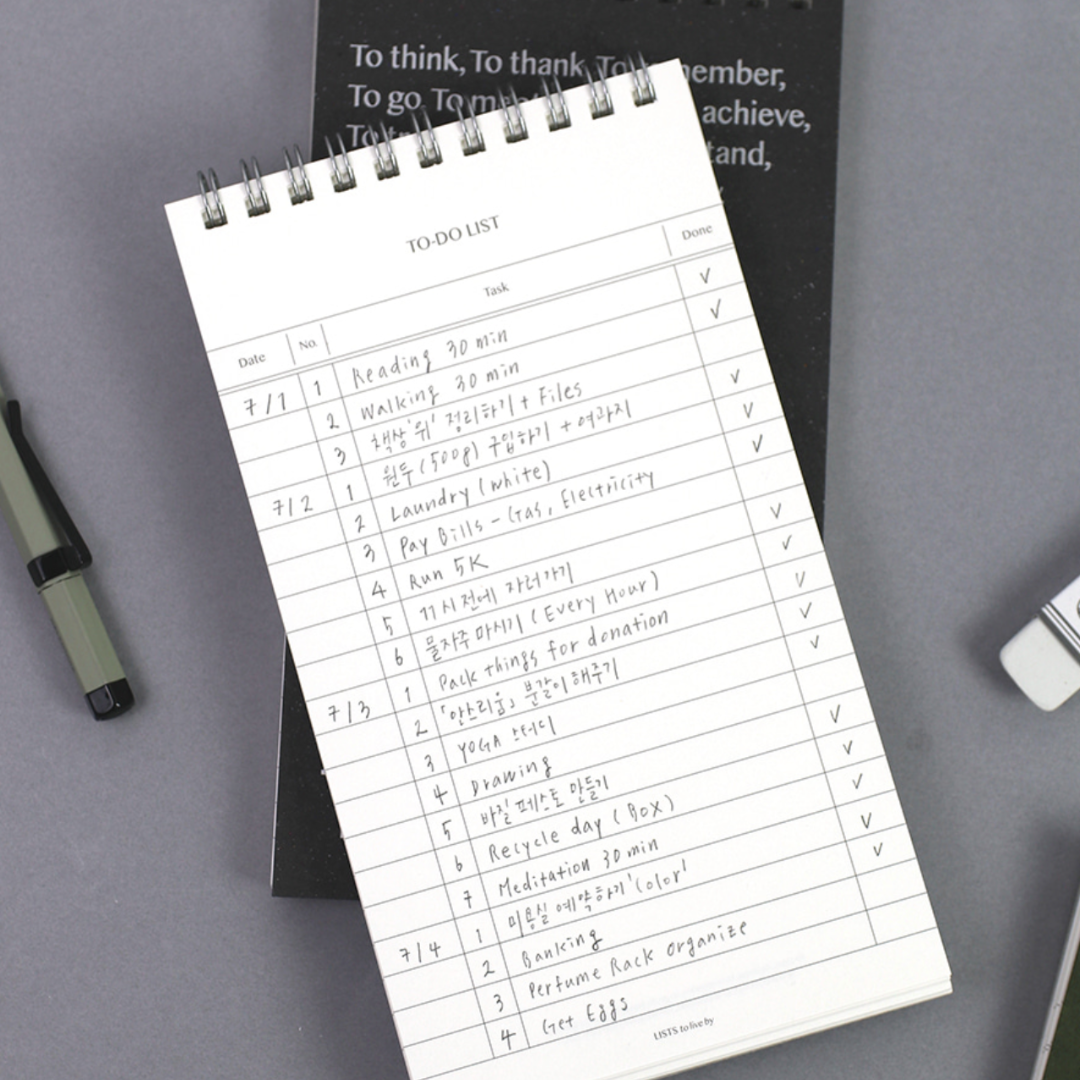 To think, To thank, To member,
To go, To achieve,
To
TO-DO LIST
Date No. Task Done
7/1 1 Reading 30 min ✓
2 Walking 30 min ✓
3 책상 '위' 정리하기 + Files
7/2 1 원두 (500g) 구입하기 + 여과지 ✓
2 Laundry (white) ✓
3 Pay Bills - Gas, Electricity ✓
4 Run 5K
5 11시 전에 자러가기 ✓
6 물 자주 마시기 (Every Hour) ✓
7/3 1 Pack things for donation ✓
2 「안스리움」 분갈이 해주기 ✓
3 YOGA 스터디 ✓
4 Drawing
5 바질 페스토 만들기 ✓
6 Recycle day (Box) ✓
7 Meditation 30 min ✓
7/4 1 미용실 예약하기 'Color' ✓
2 Banking ✓
3 Perfume Rack organize
4 Get Eggs
LISTS to live by